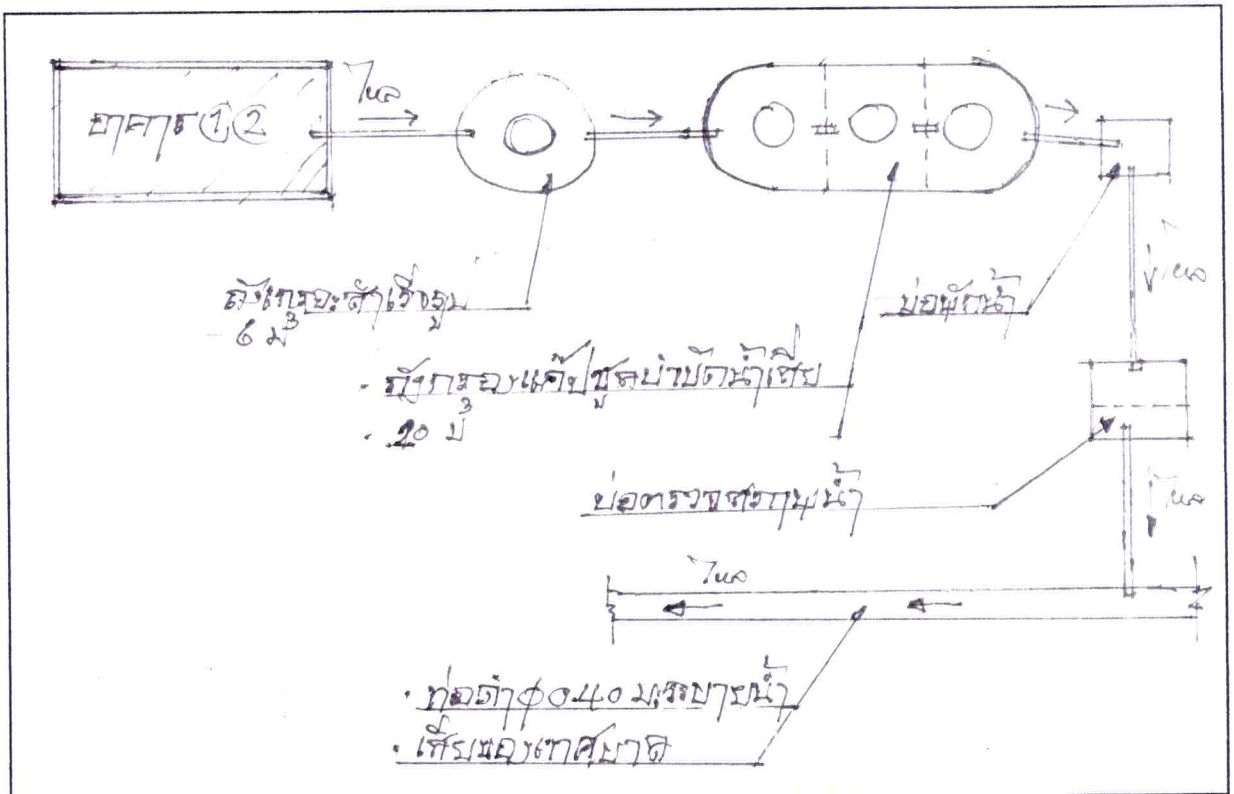 อาคาร ① ②
ไหล
ถังเกรอะสำเร็จรูป
6 ม³
· ถังกรองแค๊ปซูลบำบัดน้ำเสีย
· 20 ม³
บ่อพักน้ำ
ไหล
บ่อตรวจสภาพน้ำ
ไหล
ไหล
· ท่อดำ φ 0.40 ม. ระบายน้ำ
· เสียของเทศบาล